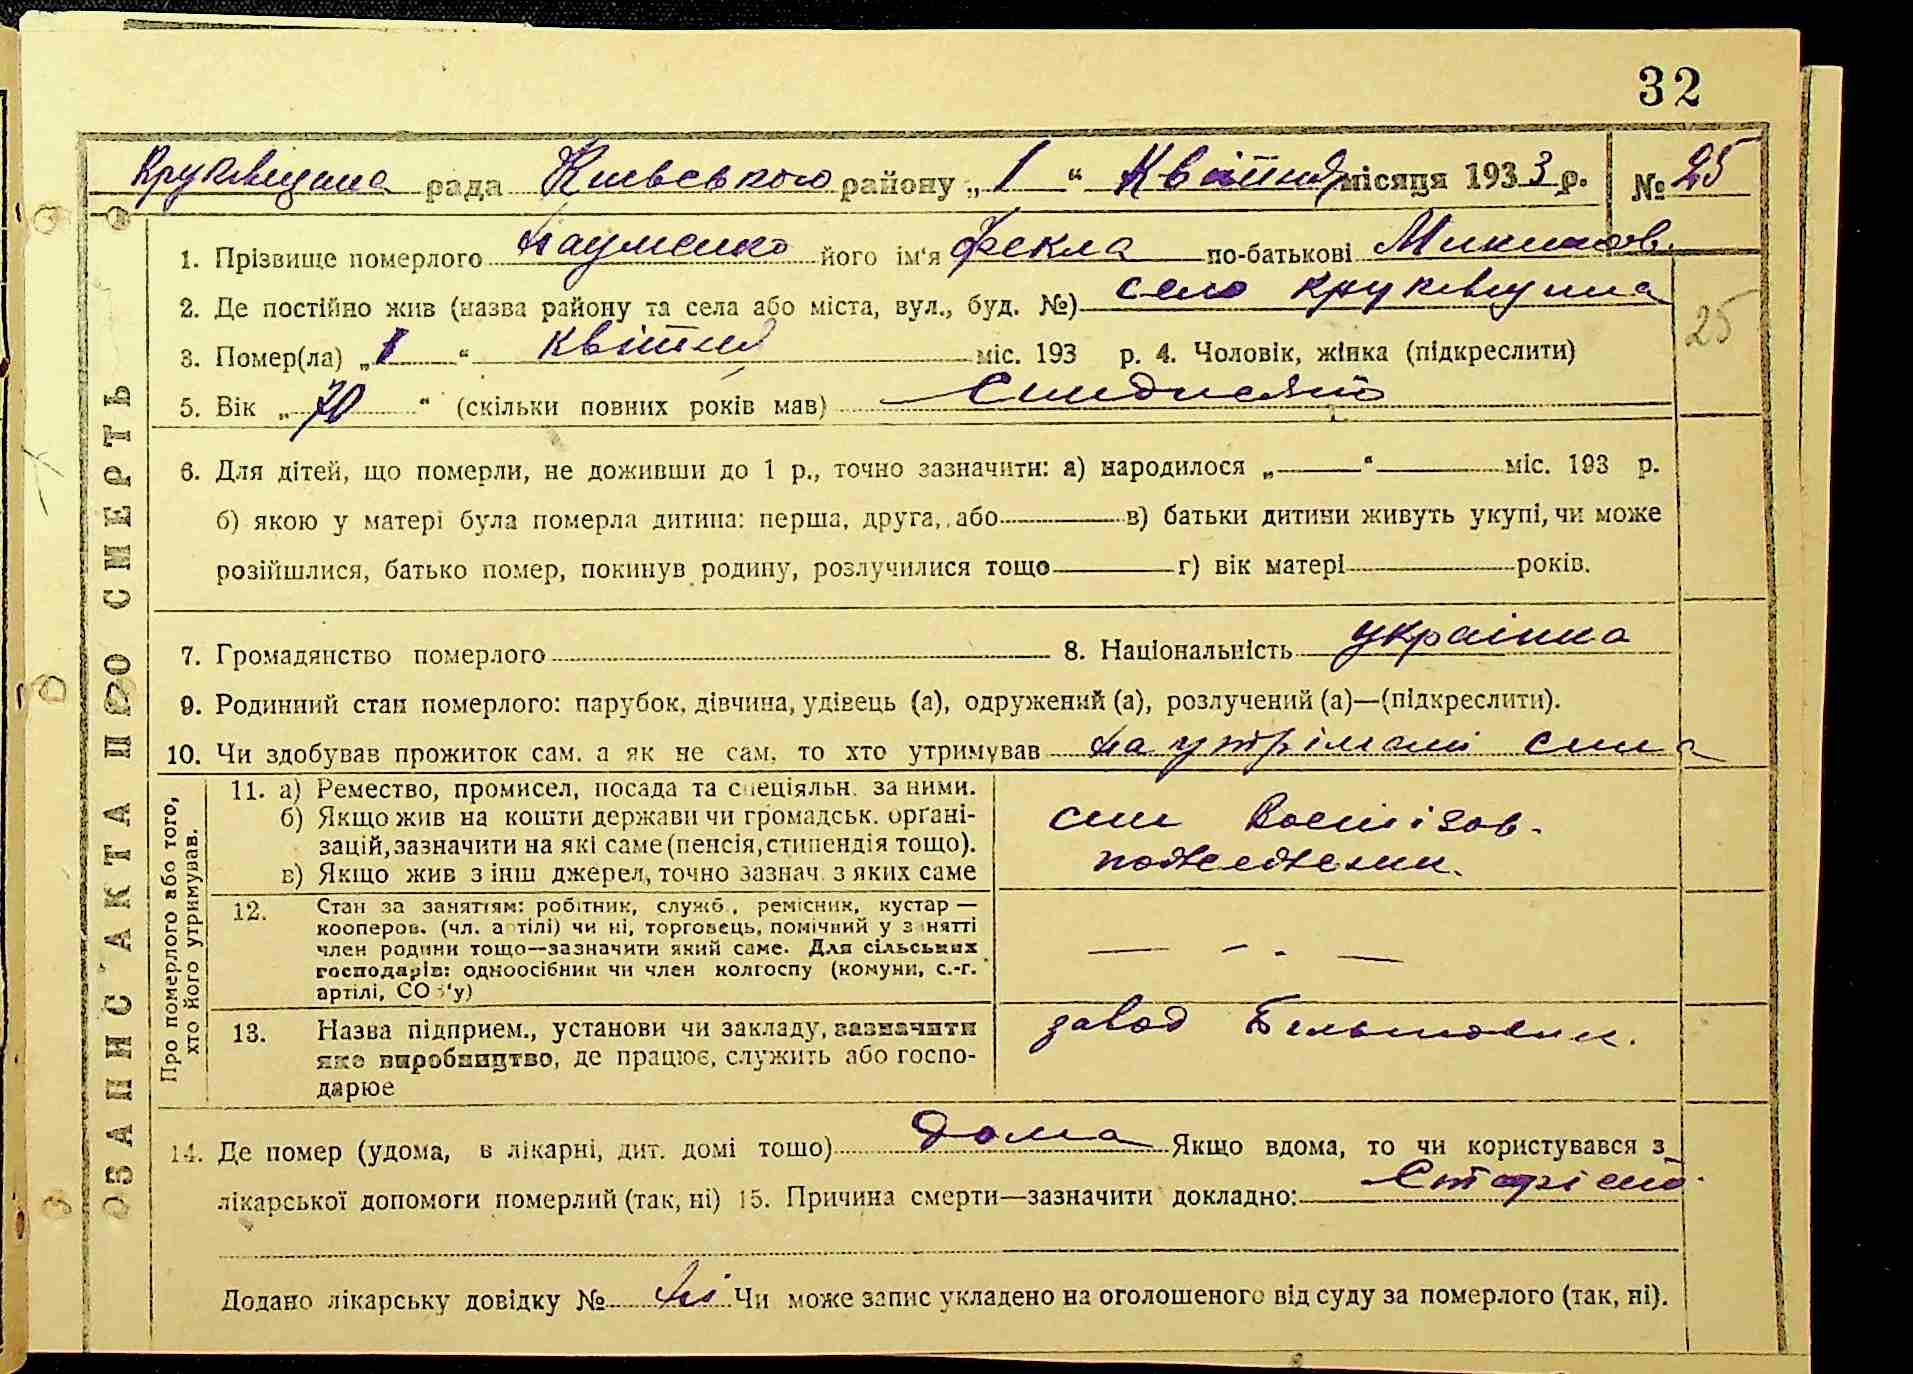 32
Круківщина рада Київського району „1“ Квітня місяця 1933 р. № 25
1. Прізвище померлого Науменко його ім'я Фекла по-батькові
2. Де постійно жив (назва району та села або міста, вул., буд. №) село Круківщина
25
3. Помер(ла) „1“ квітня міс. 193 р. 4. Чоловік, жінка (підкреслити)
5. Вік „70“ (скільки повних років мав)
6. Для дітей, що померли, не доживши до 1 р., точно зазначити: а) народилося „ “ міс. 193 р.
б) якою у матері була померла дитина: перша, друга, або в) батьки дитини живуть укупі, чи може
розійшлися, батько помер, покинув родину, розлучилися тощо г) вік матері років.
7. Громадянство померлого 8. Національність українка
9. Родинний стан померлого: парубок, дівчина, удівець (а), одружений (а), розлучений (а)—(підкреслити).
10. Чи здобував прожиток сам, а як не сам, то хто утримував на утрімані сина
ЗАПИС АКТА ПРО СМЕРТЬ
Про померлого або того,
хто його утримував.
11. а) Ремество, промисел, посада та спеціяльн. за ними.
б) Якщо жив на кошти держави чи громадськ. органі-
зацій, зазначити на які саме (пенсія, стипендія тощо).
в) Якщо жив з інш джерел, точно зазнач. з яких саме
син
12. Стан за заняттям: робітник, служб., ремісник, кустар —
кооперов. (чл. артілі) чи ні, торговець, помічний у занятті
член родини тощо—зазначити який саме. Для сільських
господарів: одноосібник чи член колгоспу (комуни, с.-г.
артілі, СОЗ'у)
— - . —
13. Назва підприєм., установи чи закладу, зазначити
яке виробництво, де працює, служить або госпо-
дарює
завод Більшовик.
14. Де помер (удома, в лікарні, дит. домі тощо) дома Якщо вдома, то чи користувався з
лікарської допомоги померлий (так, ні) 15. Причина смерти—зазначити докладно:
Додано лікарську довідку № ні Чи може запис укладено на оголошеного від суду за померлого (так, ні).